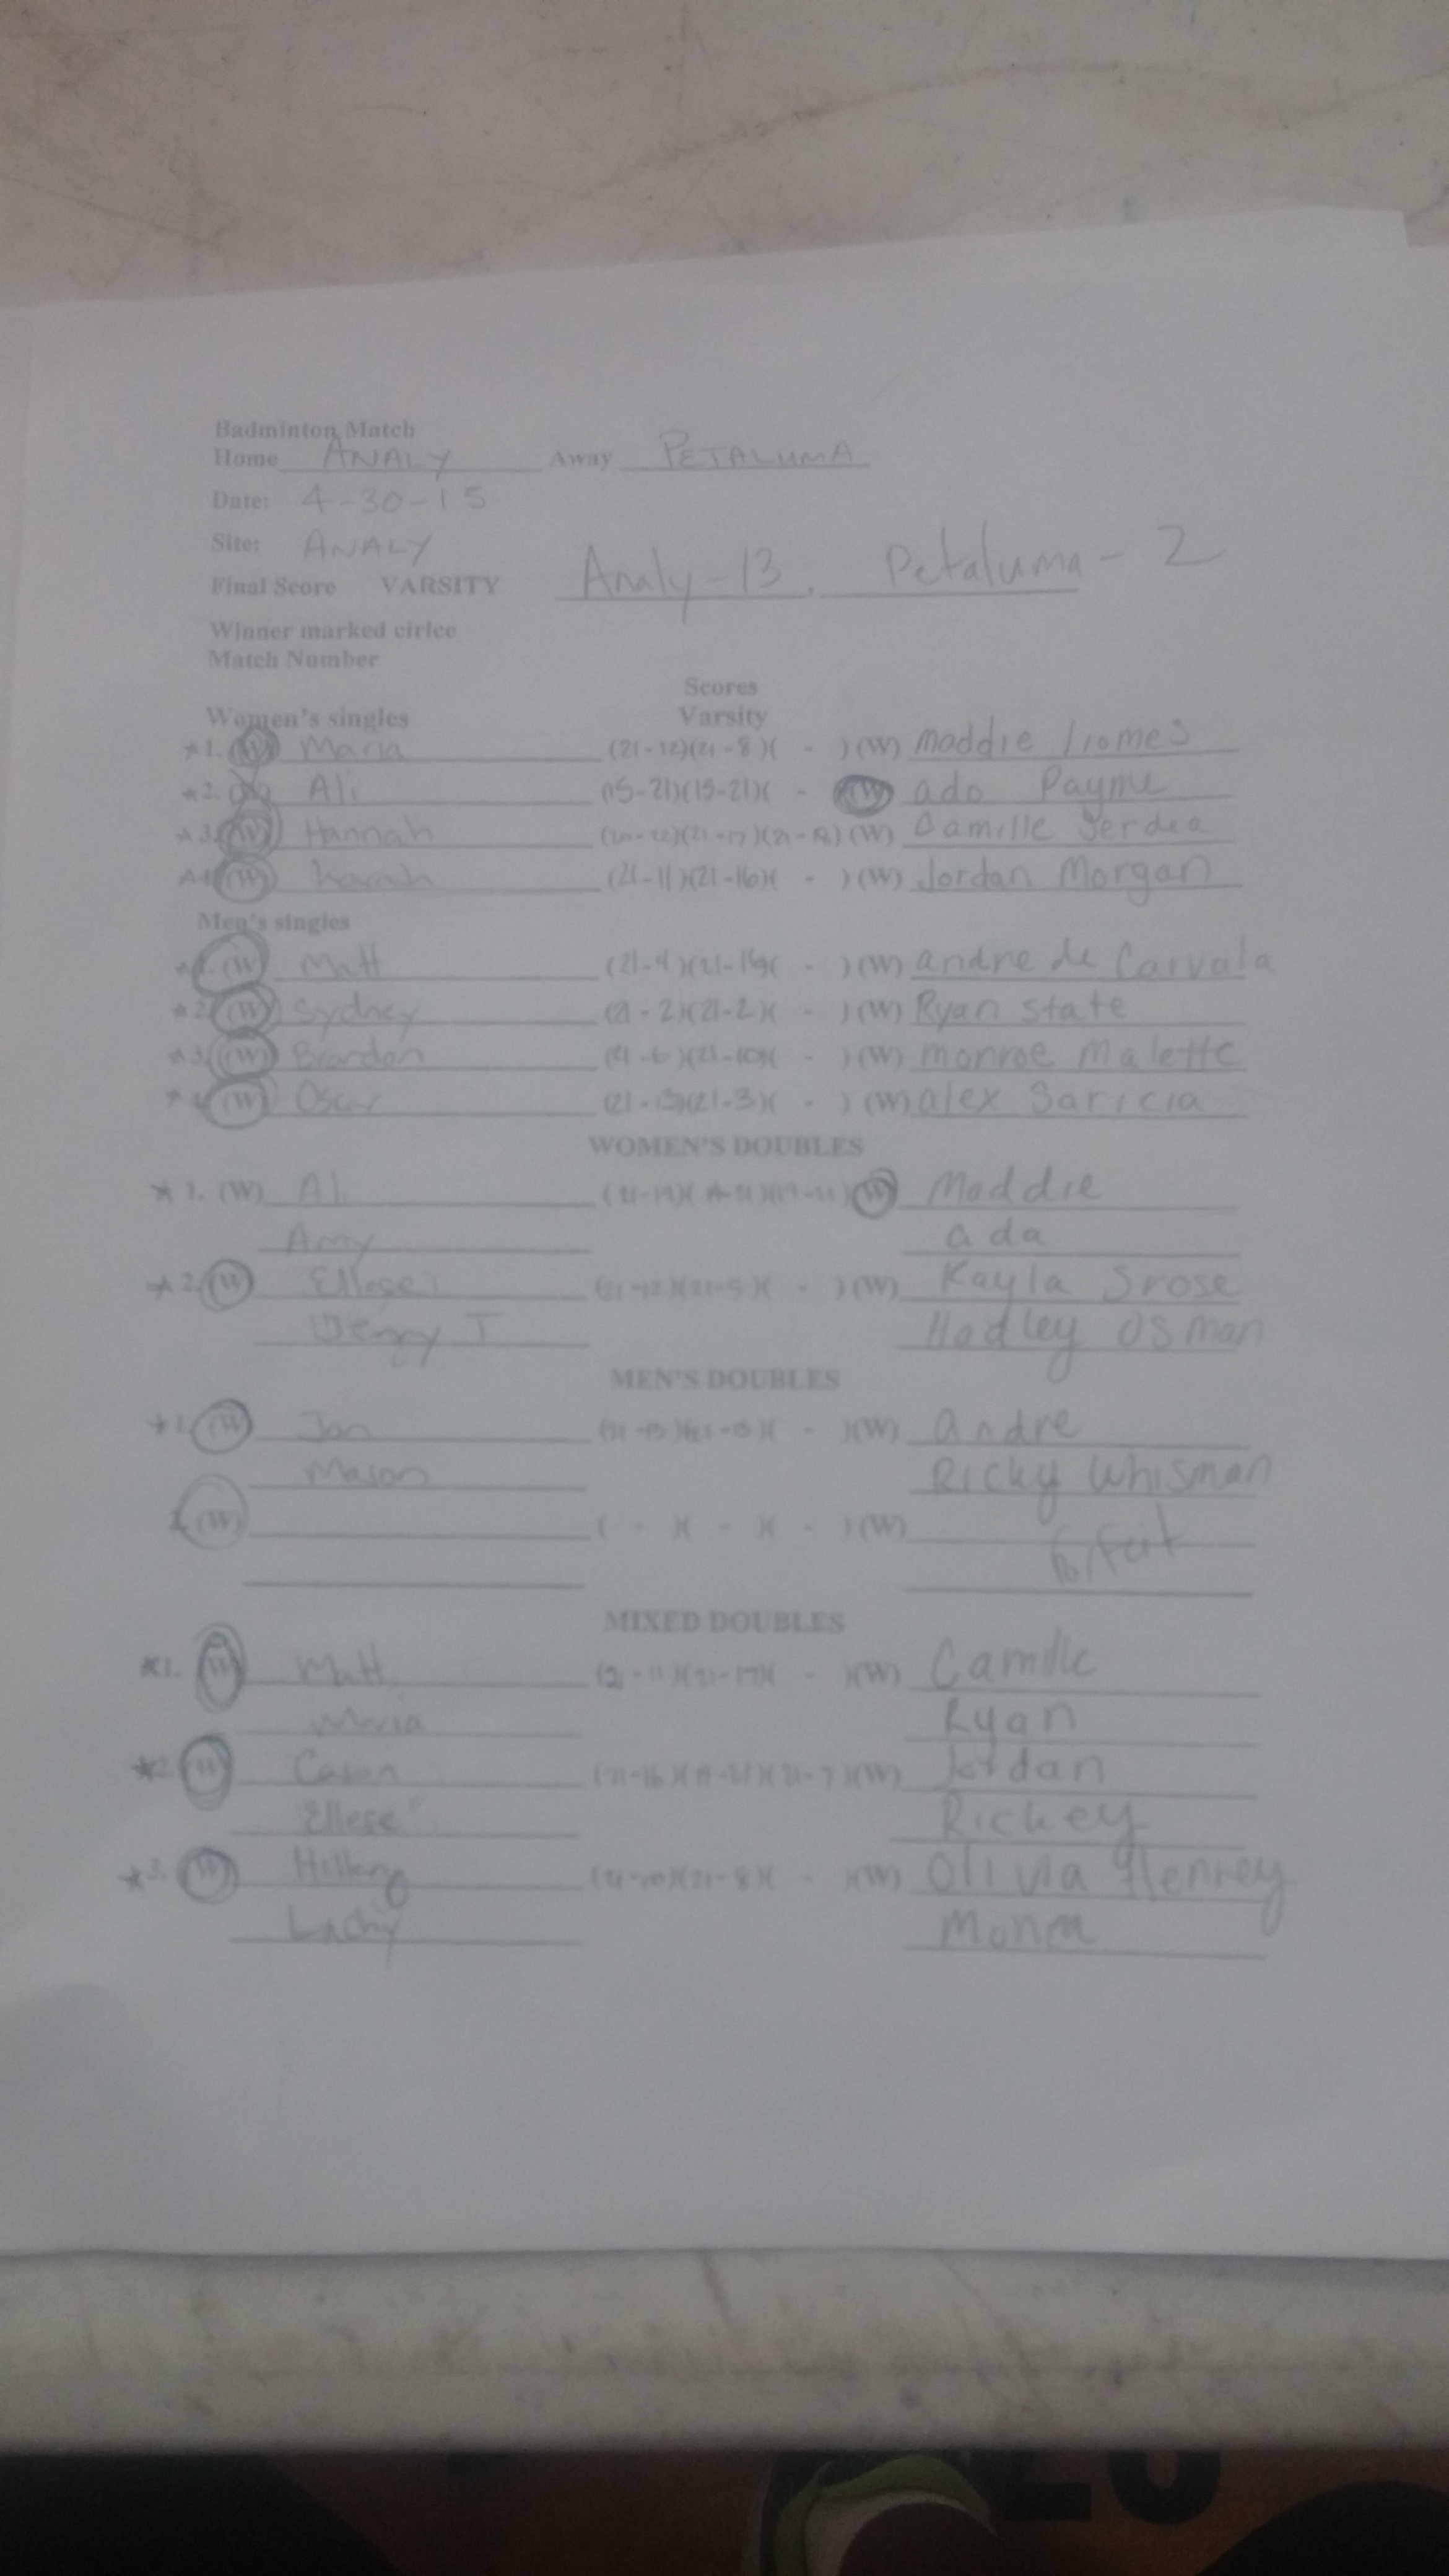 Badminton Match
Home ANALY Away PETALUMA
Date: 4-30-15
Site: ANALY
Final Score VARSITY Analy-13, Petaluma-2
Winner marked cirlce
Match Number
Scores
Women's singles Varsity
*1. (W) Maria (21-12)(21-8)( - )(W) maddie
*2. (W) Ali (15-21)(15-21)( - (W) ado Payne
*3. (W) Hannah (20-22)(21-17)(21- )(W) Camille
(W) (21-11)(21-16)( - )(W) Jordan Morgan
Men's singles
(W) Matt (21-4)(21-16)( - )(W) andre de Carvala
*2. (W) Sydney (21-2)(21-2)( - )(W) Ryan state
*3. (W) Brandon (21-6)(21-10)( - )(W) monroe Malette
* (W) Oscar (21-15)(21-3)( - )(W) alex Saricia
WOMEN'S DOUBLES
* 1. (W) Ali (21-19)( -21)(19-21)(W) Maddie
Amy ada
*2. (W) Ellese (21-12)(21-5)( - )(W) Kayla Srose
T Hadley Osman
MEN'S DOUBLES
*1. (W) Jon ( - )(W) andre
Mason Ricky Whisman
2. (W) ( - )( - )( - )(W)
MIXED DOUBLES
*1. (W) Matt (21-11)(21-17)( - )(W) Camille
Maria Ryan
*2. (W) (21-16)(19-21)(21-7)(W) Jordan
Ellese Rickey
*3. (W) (21-10)(21-8)( - )(W) Olivia Henrey
Lachy